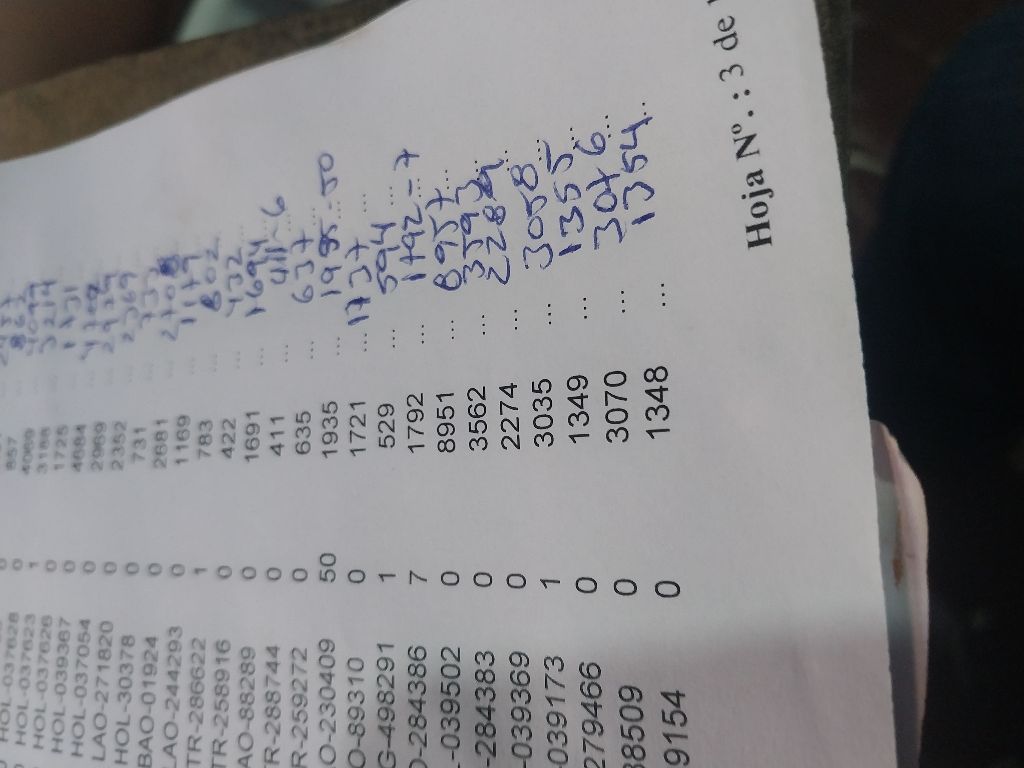 HOL-037628 0 857 ...
HOL-037623 1 4069 ...
HOL-037626 0 3188 ... 3214
HOL-039367 0 1725 ... 1731
HOL-037054 0 4684 ...
LAO-271820 0 2969 ...
HOL-30378 0 2352 ... 2369
BAO-01924 0 731 ... 733
LAO-244293 0 2681 ...
TR-286622 1 1169 ... 1179
TR-258916 0 783 ... 802
AO-88289 0 422 ... 432
TR-288744 0 1691 ... 1694
R-259272 0 411 ... 411-6
O-230409 50 635 ... 637
O-89310 0 1935 ... 1995-50
G-498291 1 1721 ... 1737
O-284386 7 529 ... 594
-039502 0 1792 ... 1792=7
-284383 0 8951 ... 8957
-039369 0 3562 ... 3593
-039173 1 2274 ... 2284
279466 0 3035 ... 3058
38509 0 1349 ... 1355
9154 0 3070 ... 3076
1348 ... 1354
Hoja Nº. : 3 de